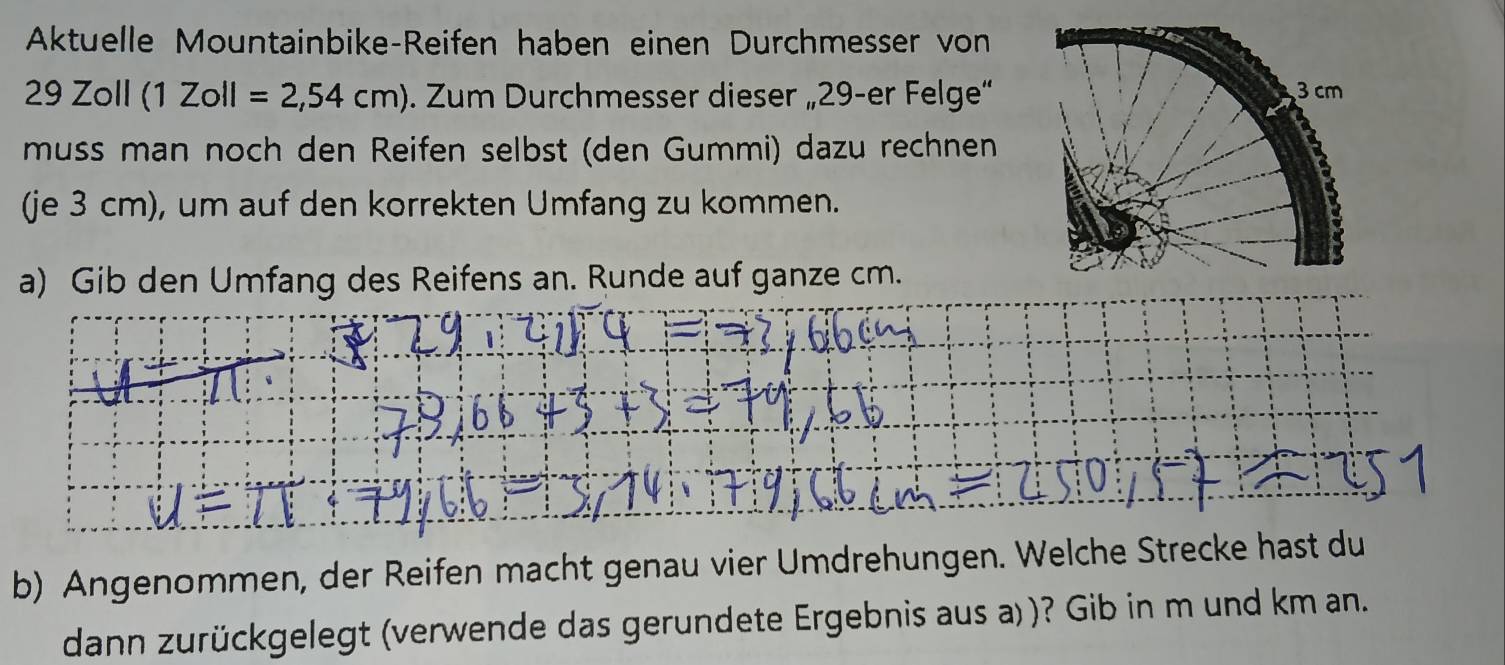 Aktuelle Mountainbike-Reifen haben einen Durchmesser von
29 Zoll (1 Zoll = 2,54 cm). Zum Durchmesser dieser „29-er Felge“
muss man noch den Reifen selbst (den Gummi) dazu rechnen
(je 3 cm), um auf den korrekten Umfang zu kommen.
3 cm
a) Gib den Umfang des Reifens an. Runde auf ganze cm.
29 · 2,54 = 73,66 cm
U = π ·
73,66 + 3 + 3 = 79,66
U = π · 79,66 = 3,14 · 79,66 cm = 250,157 ≈ 251
b) Angenommen, der Reifen macht genau vier Umdrehungen. Welche Strecke hast du
dann zurückgelegt (verwende das gerundete Ergebnis aus a) )? Gib in m und km an.